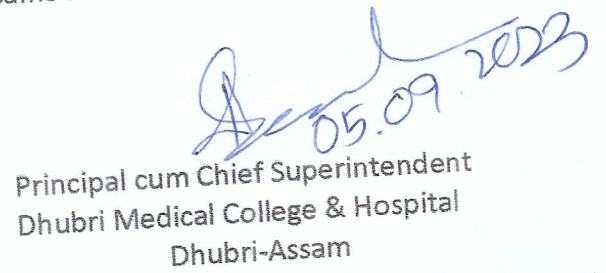 05.09.2023
Principal cum Chief Superintendent
Dhubri Medical College & Hospital
Dhubri-Assam